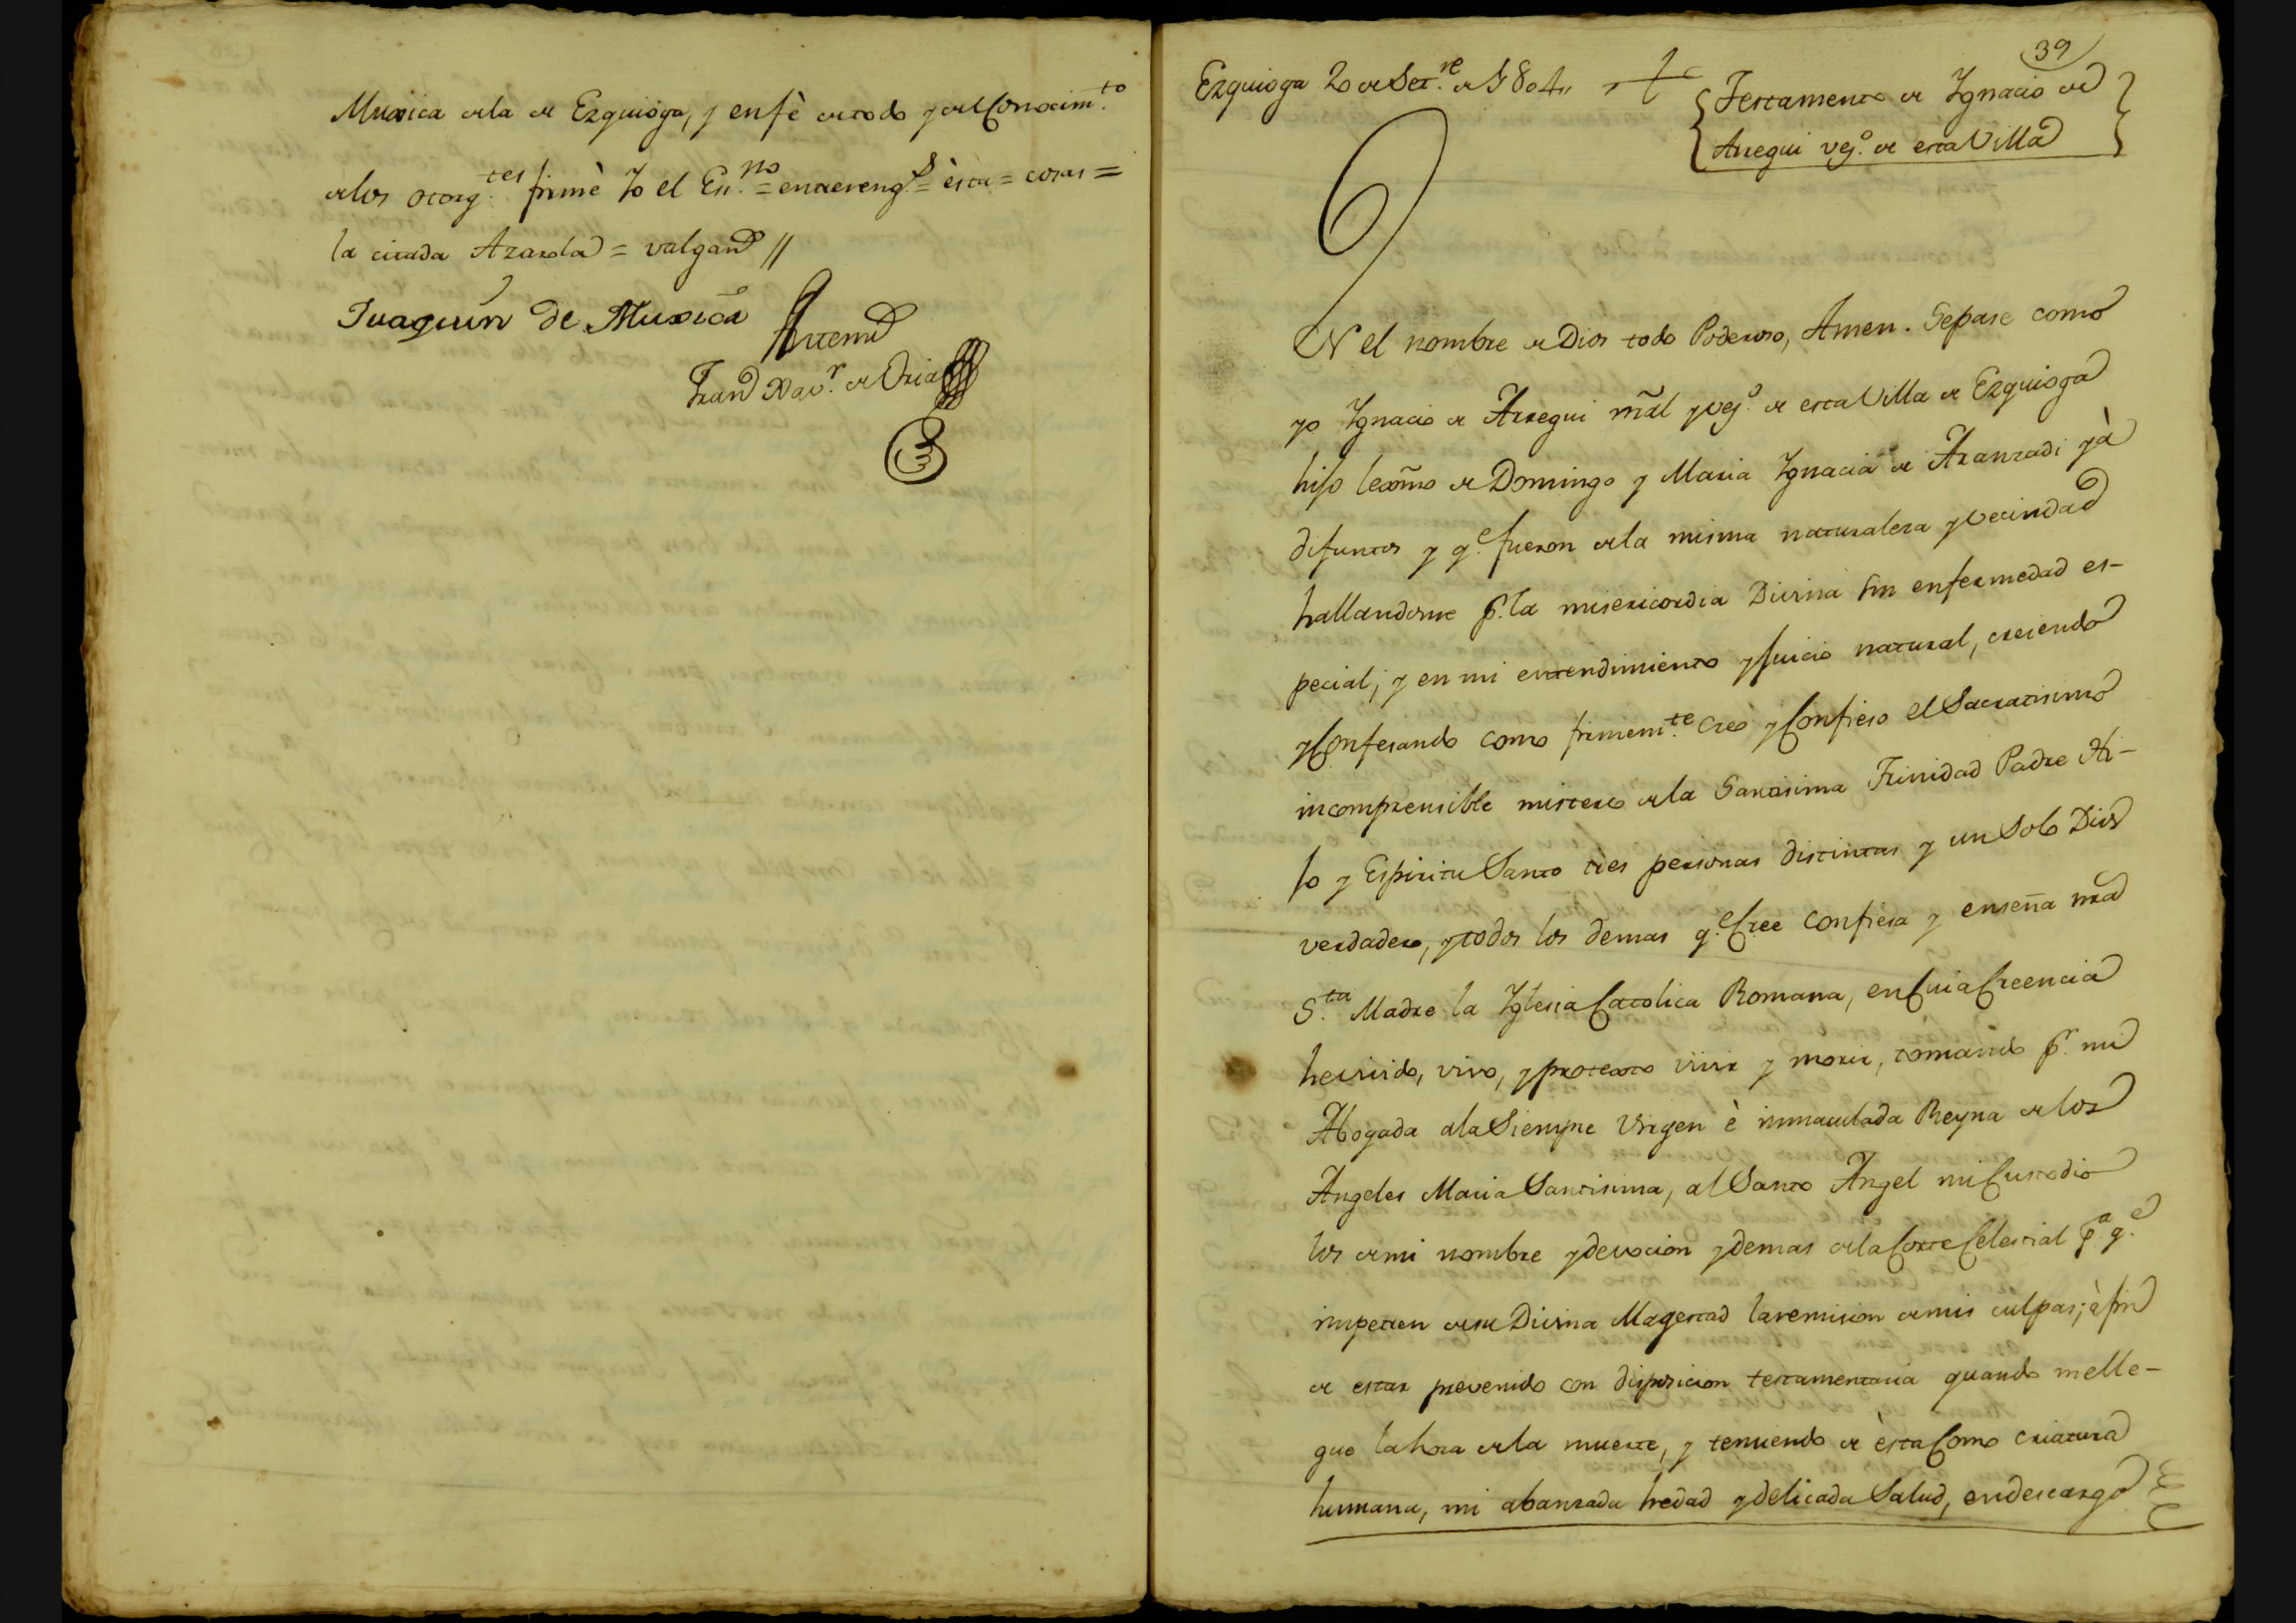 Muxica de la de Ezquioga, y en fè de todo y del Conocim.to
de los otorg.tes firmè Yo el Es.no = entrereng.s = èsta = cosas =
la citada Azarola = valgan //
Juaquin de Muxica
Antemi
Fran.co Xav.r de Oria
39
Ezquioga 20 de Set.re de 1804,,
Testamento de Ignacio de
Arregui vez.o de esta Villa
EN el nombre de Dios todo Poderoso, Amen. Sepase como
yo Ignacio de Arregui nãl y vez.o de esta Villa de Ezquioga
hijo lexmo de Domingo y Maria Ignacia de Aranzadi yà
difuntos y q.e fueron de la misma naturaleza y vecindad
hallandome p.r la misericordia Divina sin enfermedad es-
pecial, y en mi entendimiento y juicio natural, creiendo
y Confesando como firmem.te Creo y Confieso el Sacratisimo
incomprensible misterio de la Santisima Trinidad Padre Hi-
jo y Espiritu Santo tres personas distintas y un Solo Dios
verdadero, y todos los demas q.e Cree Confiesa y enseña nra
S.ta Madre la Yglesia Catolica Romana, en Cuia Creencia
he vivido, vivo, y protexto vivir y morir, tomando p.r mi
Abogada a la Siempre Virgen è inmaculada Reyna de los
Angeles Maria Santisima, al Santo Angel mi Custodio
los de mi nombre y devocion y demas de la Corte Celestial p.a q.e
impetren de su Divina Magestad la remision de mis culpas; à fin
de estar prevenido con disposicion testamentaria quando me lle-
gue la hora de la muerte, y temiendo de èsta Como criatura
humana, mi abanzada hedad y delicada Salud, en descargo